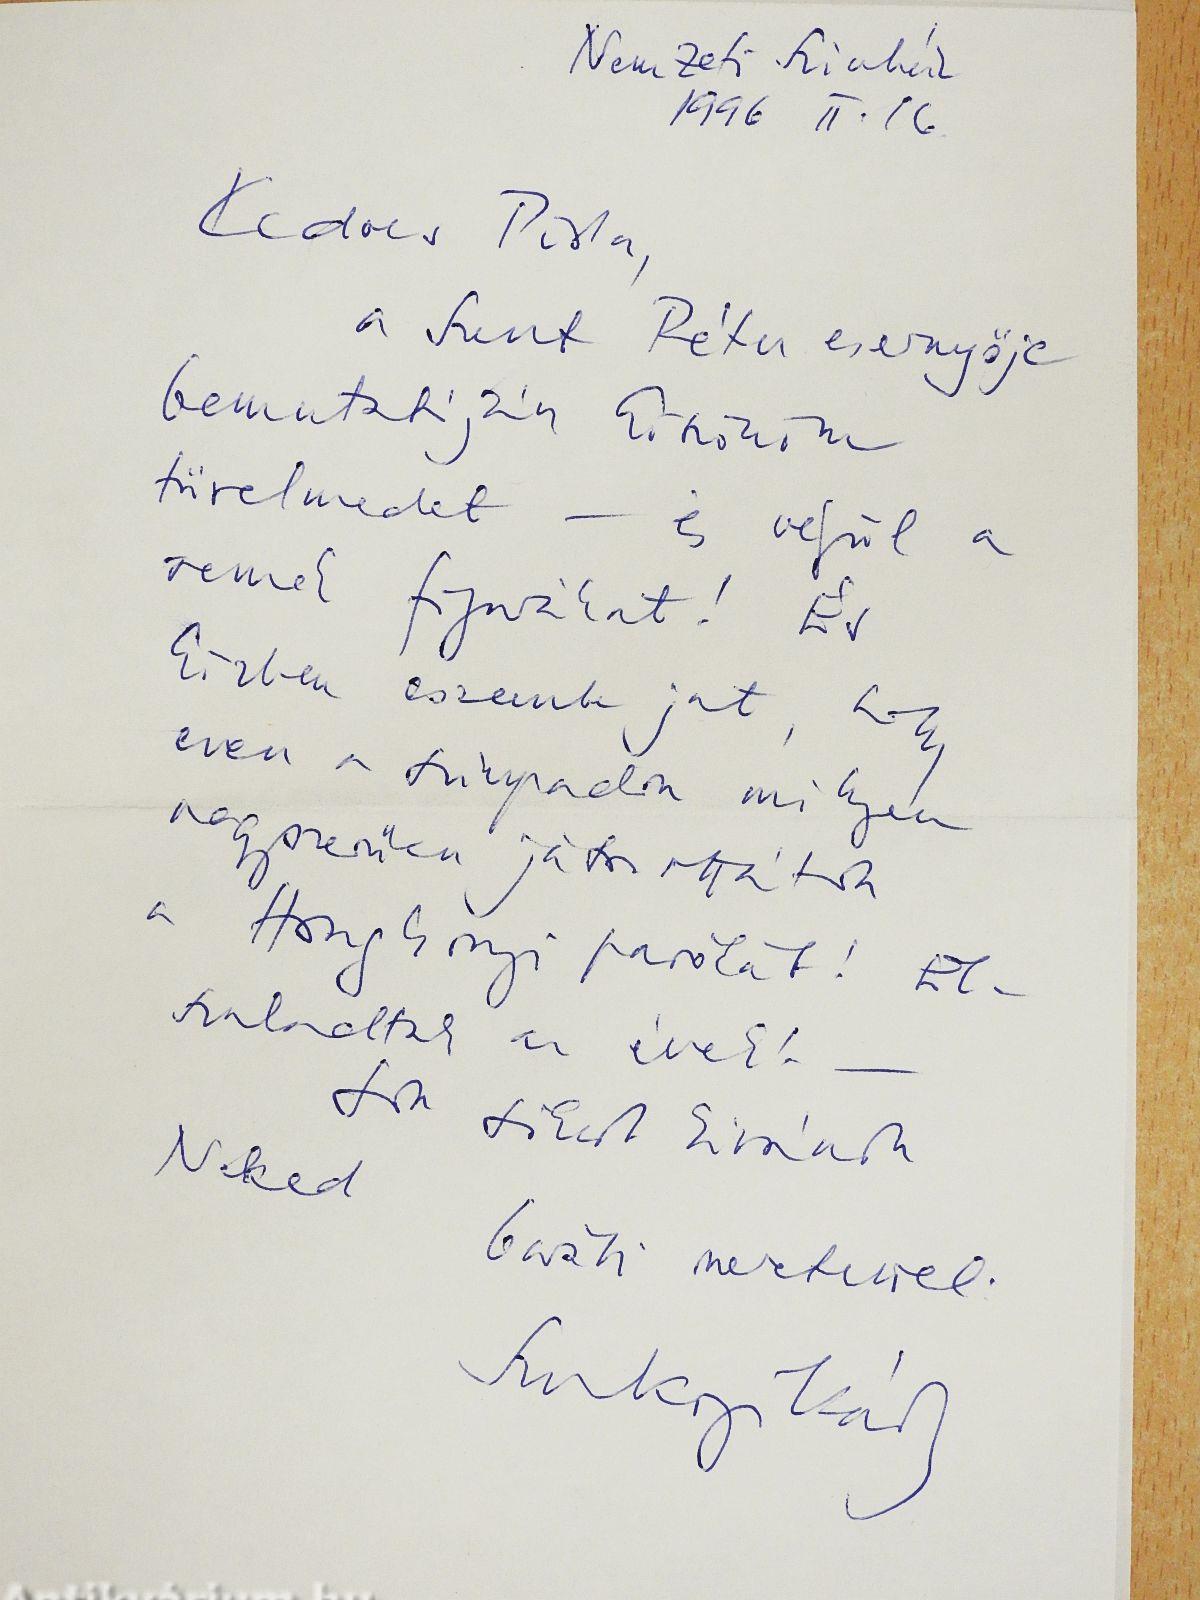 Nemzeti Szinház
1996 II. 16.
Kedves Pista,
a Szent Péter esernyője
bemutatóján köszönöm
türelmedet — és végül a
remek figurákat! És
közben eszembe jut, hogy
ezen a színpadon milyen
nagyszerűen játszottátok
a Hongkongi parókát! El-
szaladtak az évek! —
Sok sikert kívánok
Neked
baráti szeretettel.